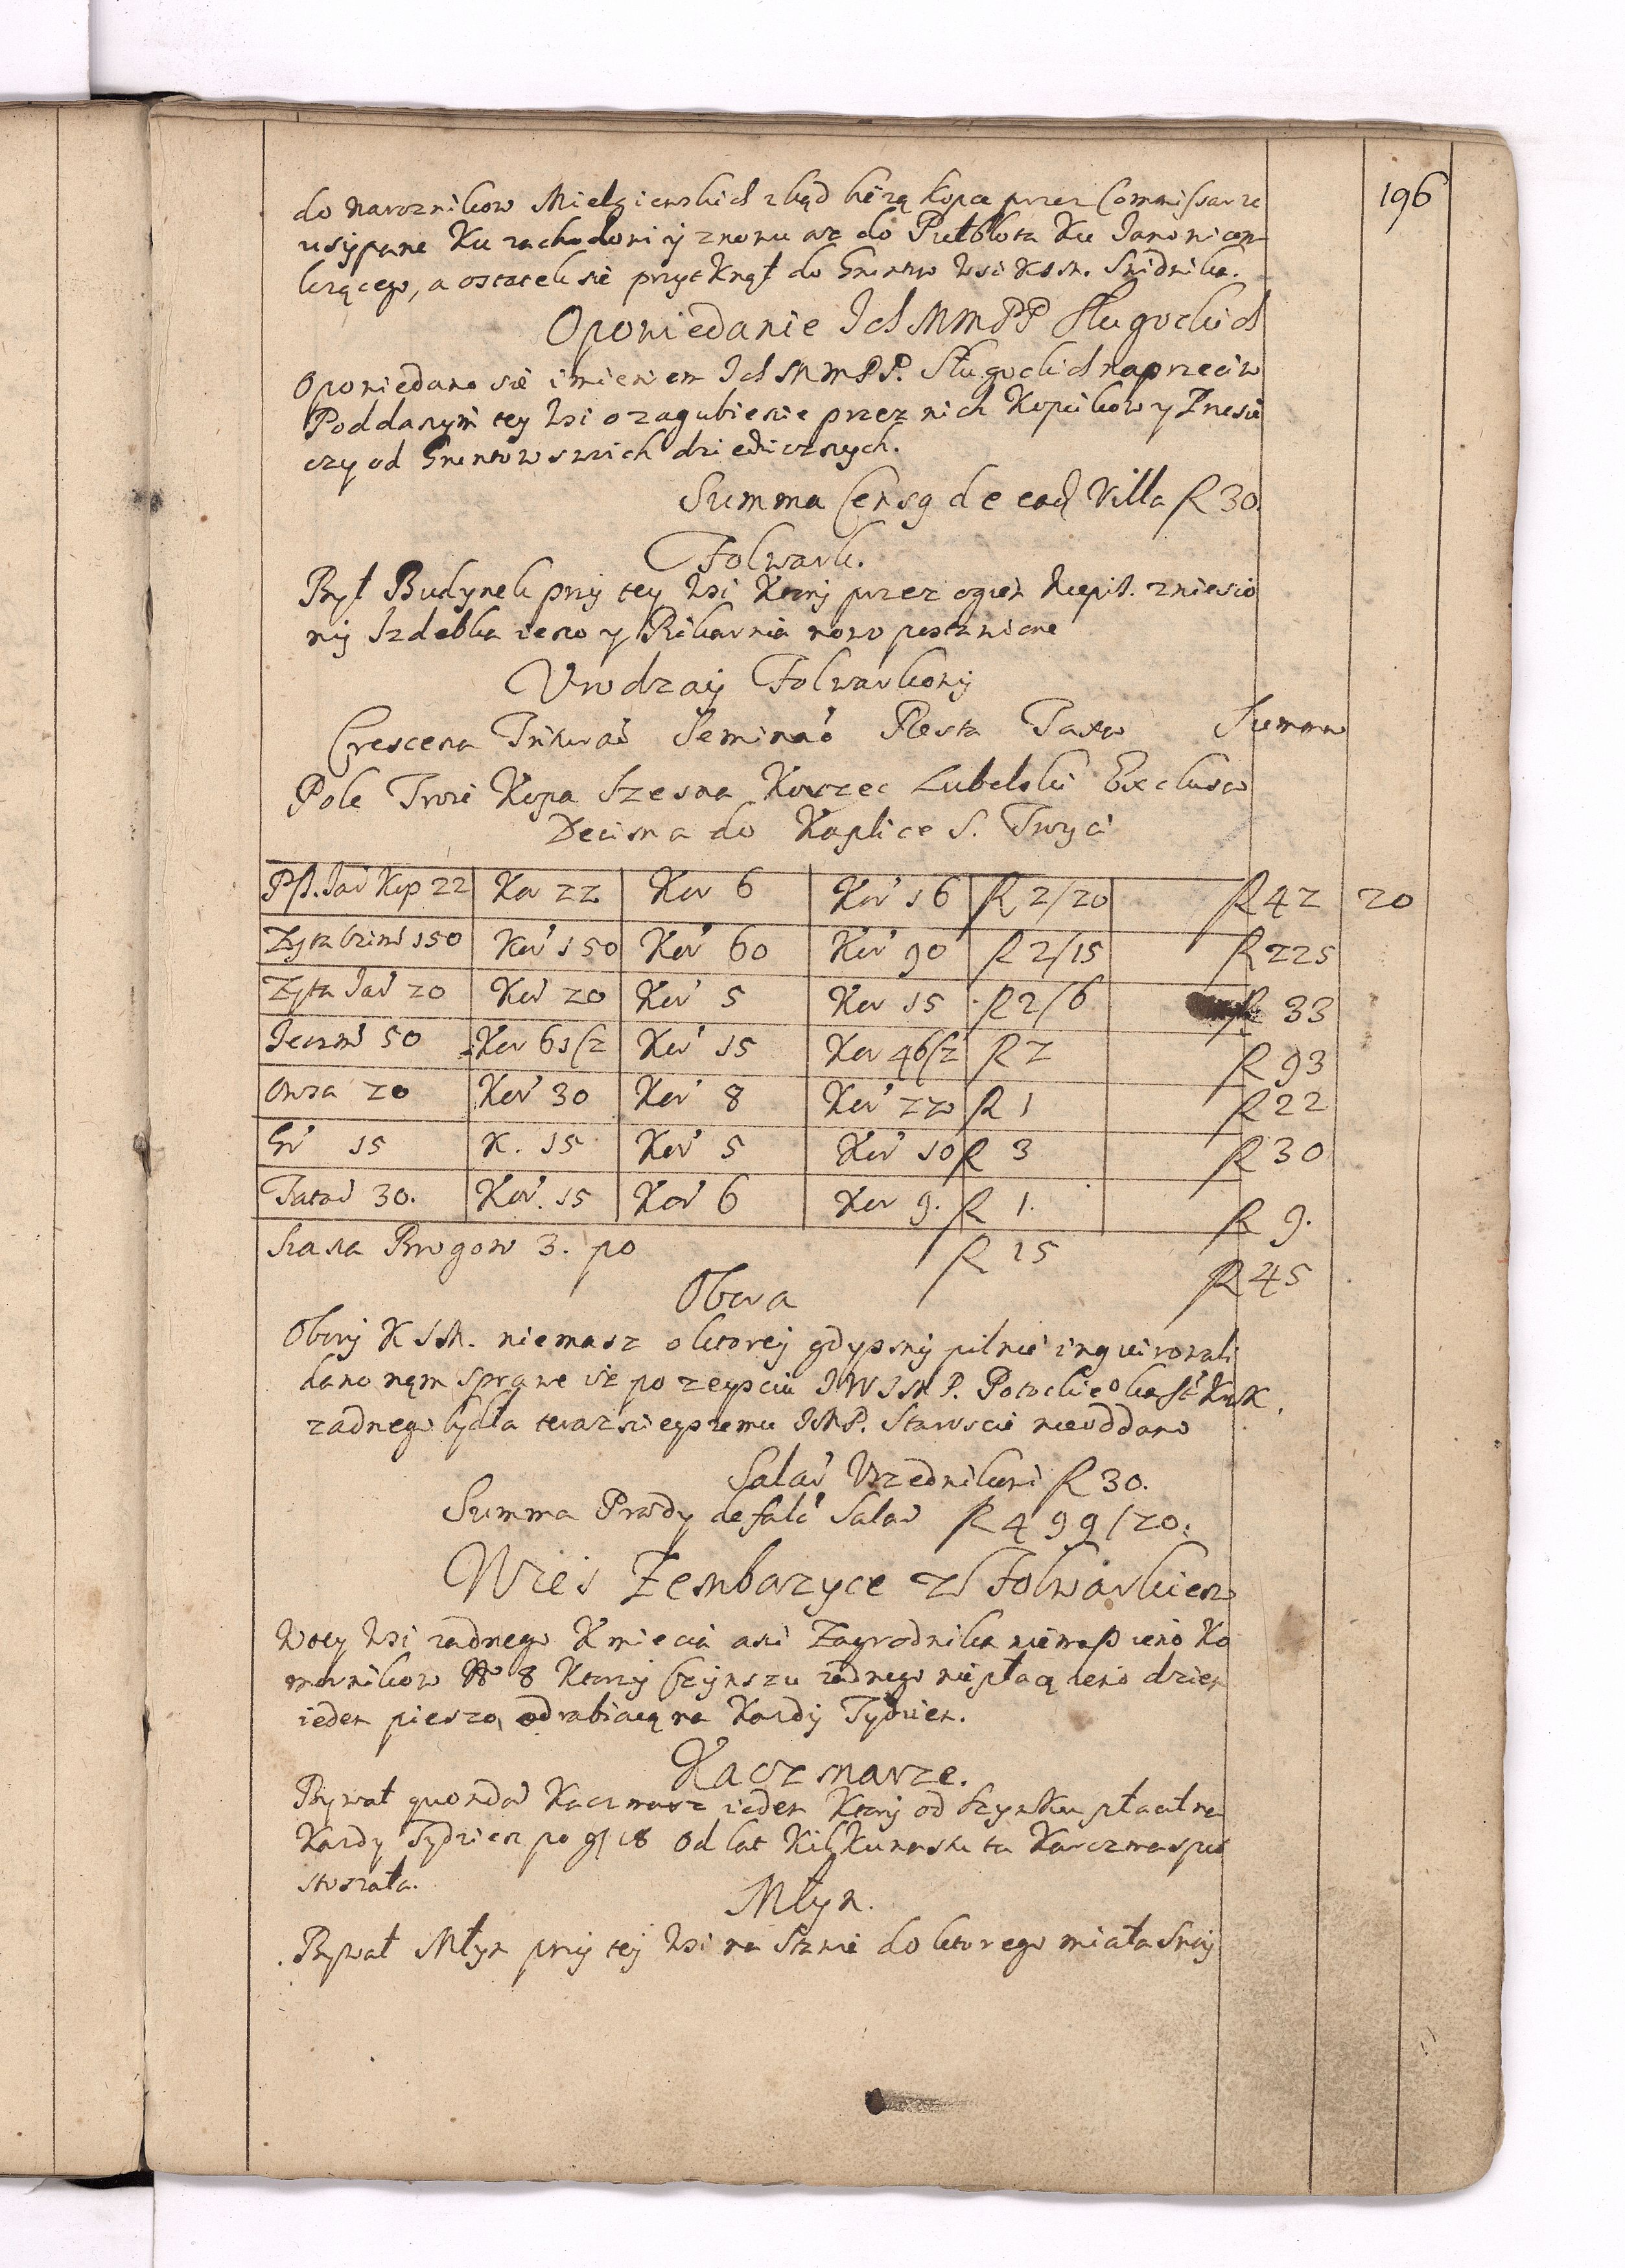 196
do Naroznikow Mielgiewskich zkąd bieżą kopce przez Commissarze
usypane Ku zachodowi y znowu asz do Put błota Ku Janowicom
lezącego, a ostatek sie przytknął do Gruntow Wsi KJM. Swidnika.
Opowiedanie Ich MMPP Sługockich
Opowiedano sie imieniem Ich MMPP. Sługockich naprzeciw
Poddanym tey Wsi o zagubienie przez nich Kopcikow y Znesie
czy od Gruntow swoich dziedicznych.
Summa Censg de ead Villa R 30.
Folwark.
Był Budynek przy tey Wsi Ktory przez ogien zniesio
ny Izdebka iesio y Pikarnia nowo postawione
Vrodzay Folwarkowy
Crescena Tritura Semina Resta Taxa Summa
Pole Trosi Kopa Szesna Korzec Lubelski Exclusa
Decima do Kaplice S. Troyci
Psz. Jar Kop 22 Kor 22 Kor 6 Kor 16 R 2/20 R 42 20
Zyta Ozim 150 Kor 150 Kor 60 Kor 90 R 2/15 R 225
Zyta Jar 20 Kor 20 Kor 5 Kor 15 R 2/6 R 33
Jeczm 50 Kor 61/2 Kor 15 Kor 46/2 R 2 R 93
Owsa 20 Kor 30 Kor 8 Kor 22 R 1 R 22
Gr 15 K. 15 Kor 5 Kor 10 R 3 R 30
Tatar 30. Kor. 15 Kor 6 Kor 9. R 1. R 9.
Siana Brogow 3. po R 15 R 45
Obora
Obory KJM. niemasz o ktorey gdysmy pilnie inquirowali
dano nąm sprawe iż po zeysciu JWJMP. Potockieo kaszt Krak.
zadnego bydła terazniejszemu JMP. Staroscie nieoddano
Salar Vrzednikowi R 30.
Summa Prowdy defalc Salar R 499/20.
Wies Zembozyce z Folwarkiem
Wtey Wsi zadnego Kmiecia ani Zagrodnika niemasz ieno Ko
mornikow No 8 Ktorzy Czynszu zadnego niepłacą ieno dzien
ieden pieszo, odrabiaią na Kozdy Tydzien.
Kaczmarze.
Bywał quonda Kaczmarz ieden Ktory od Szynku płacił na
Kozdy Tydzien po g 18 Od lat Kilkunastu ta Karczma spu
stoszała.
Młyn.
Bywał Młyn przy tey Wsi na Stawie do ktorego miała